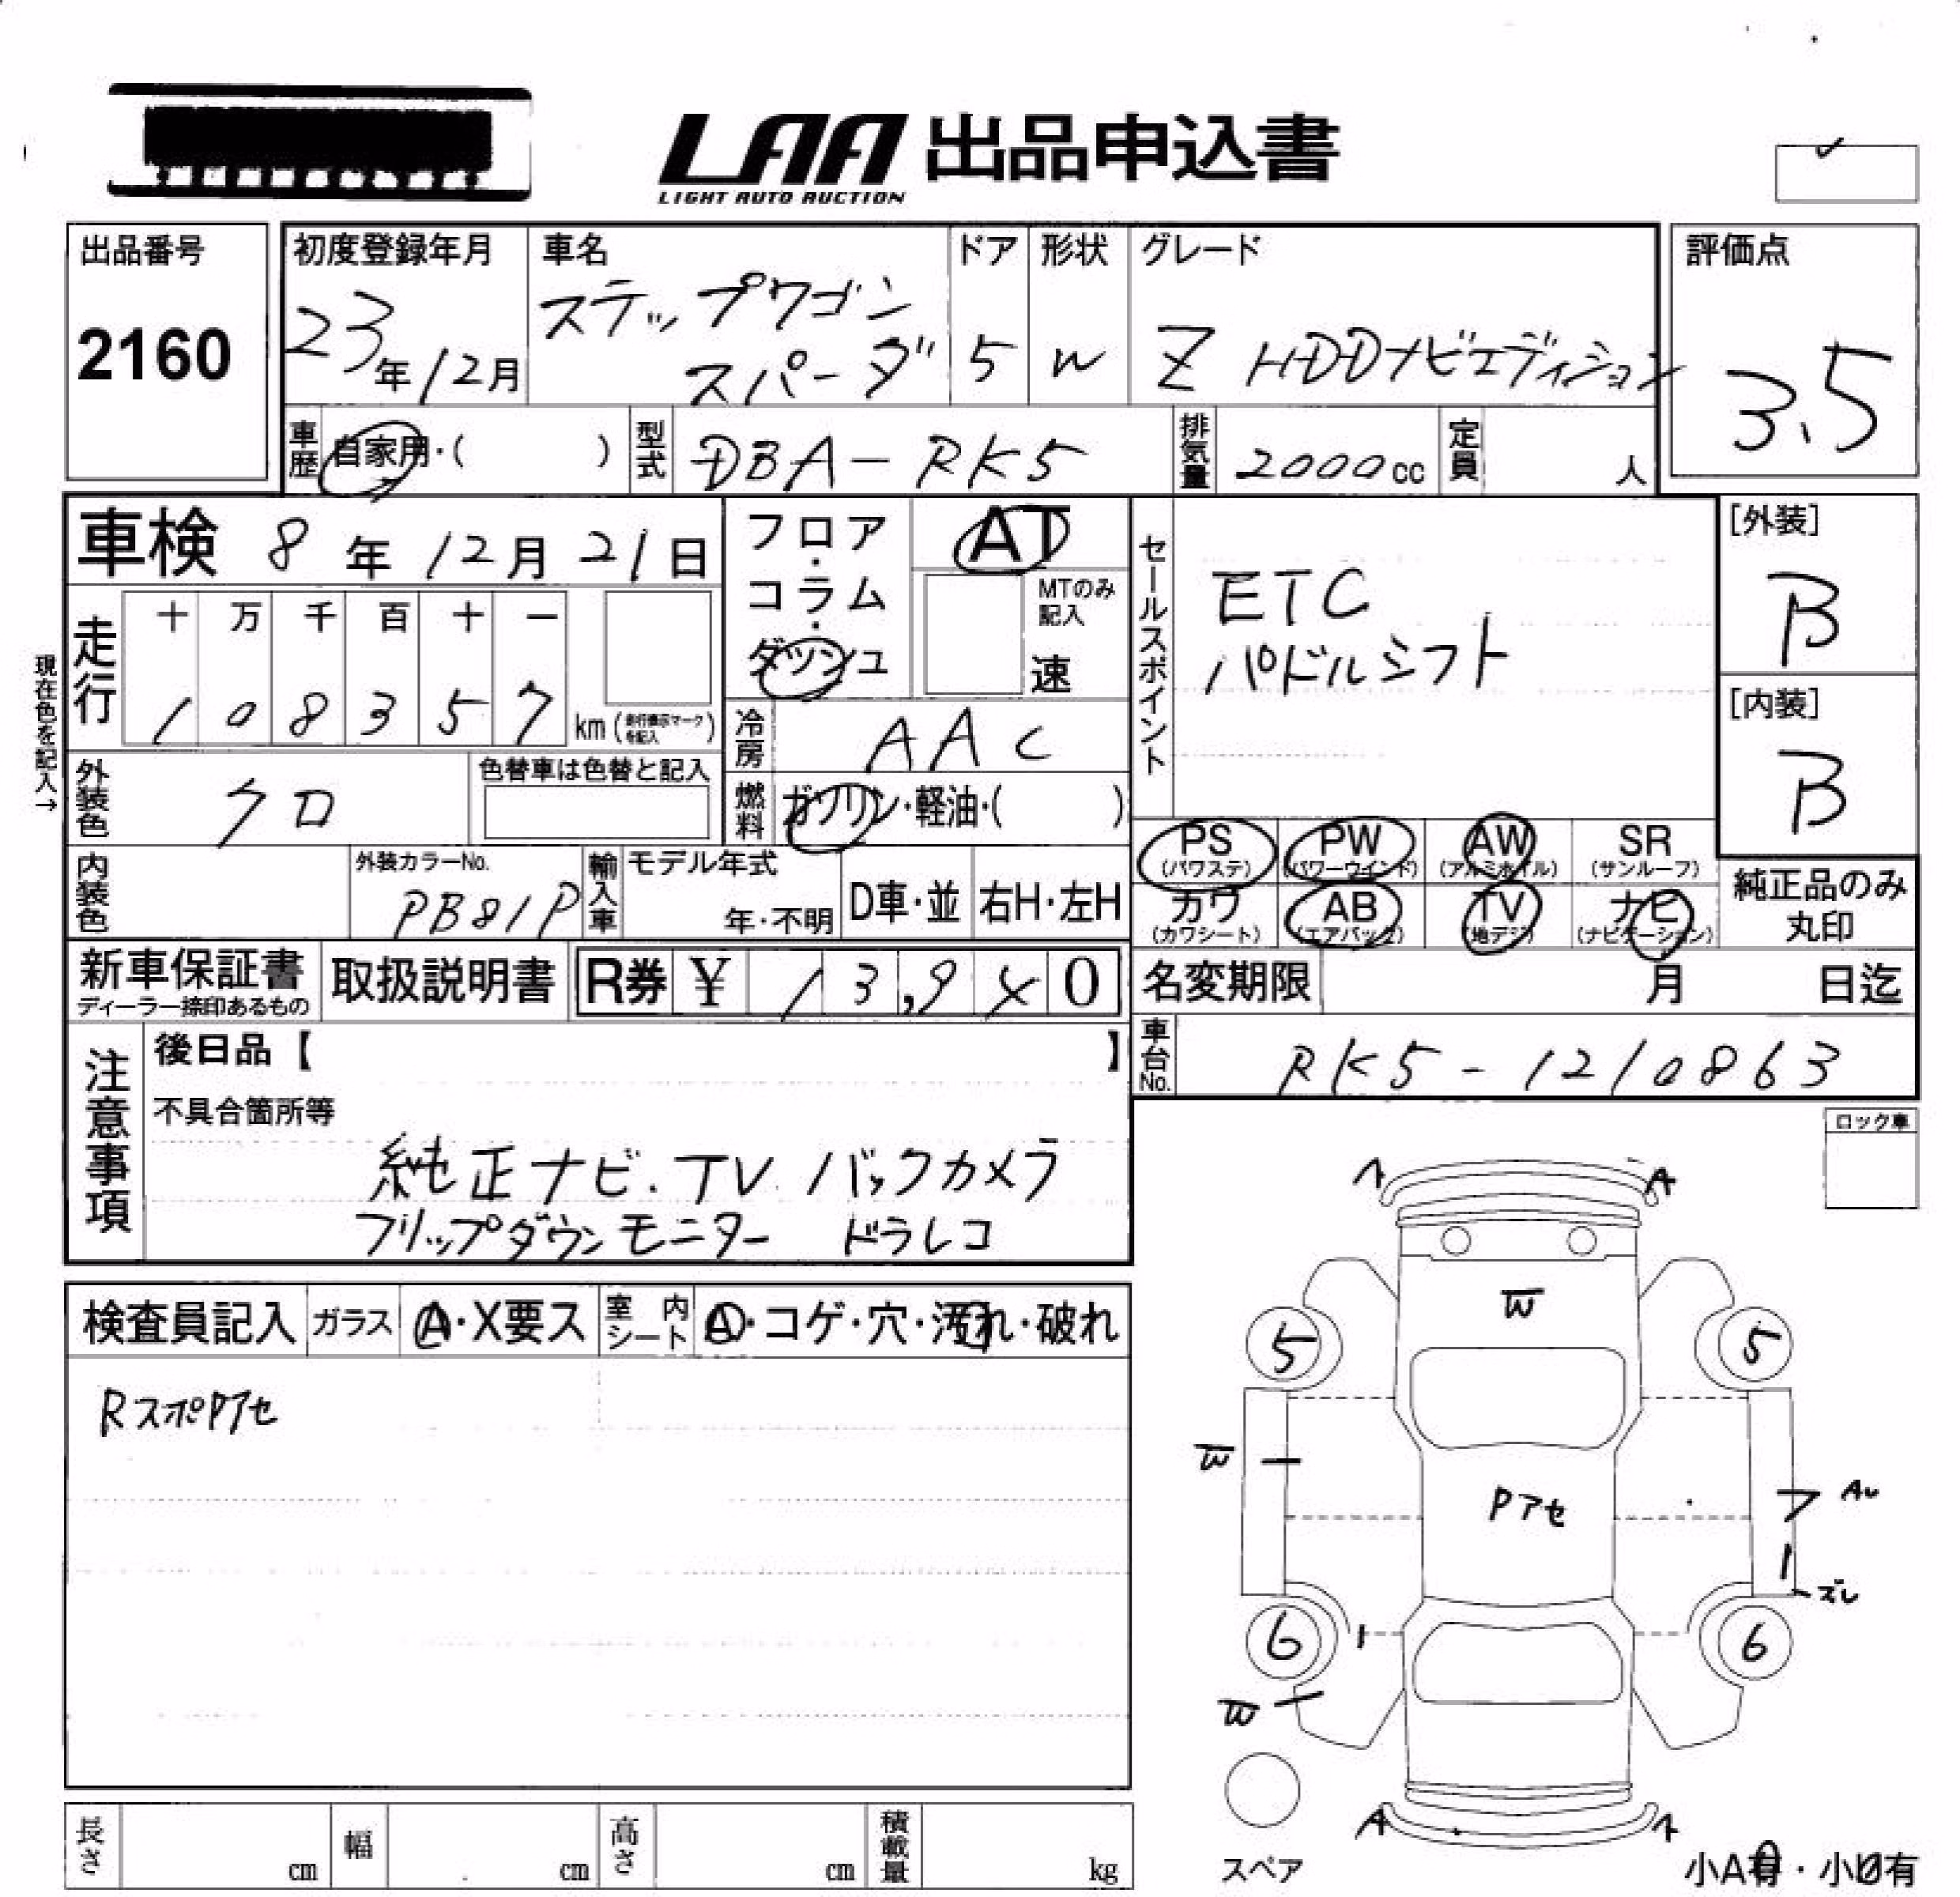 LAA 出品申込書
LIGHT AUTO AUCTION
出品番号
2160
初度登録年月
23年12月
車名
ステップワゴン
スパーダ
ドア
5
形状
W
グレード
Z HDDナビエディション
評価点
3.5
車歴
自家用・( )
型式
DBA-RK5
排気量
2000cc
定員
人
車検 8年12月21日
フロア・コラム・ダッシュ
AT
MTのみ記入
速
セールスポイント
ETC
パドルシフト
[外装]
B
[内装]
B
現在色を記入→
走行
十 万 千 百 十 一
1 0 8 3 5 7
km(走行表示マークを記入)
冷房
AAC
外装色
クロ
色替車は色替と記入
燃料
ガソリン・軽油・( )
PS
(パワステ)
PW
(パワーウインド)
AW
(アルミホイル)
SR
(サンルーフ)
カワ
(カワシート)
AB
(エアバック)
TV
(地デジ)
ナビ
(ナビゲーション)
純正品のみ
丸印
内装色
外装カラーNo.
PB81P
輸入車
モデル年式
年・不明
D車・並
右H・左H
新車保証書
ディーラー捺印あるもの
取扱説明書
R券 ¥ 13,940
名変期限 月 日迄
車台No.
RK5-1210863
注意事項
後日品【 】
不具合箇所等
純正ナビ.TV バックカメラ
フリップダウンモニター ドラレコ
ロック車
検査員記入
ガラス
A・X要ス
室内シート
A・コゲ・穴・汚れ・破れ
RスポPアセ
A
A
W
5
5
W
Pアセ
AU
ズレ
6
6
W
A
A
スペア
小A有・小U有
長さ
cm
幅
cm
高さ
cm
積載量
kg